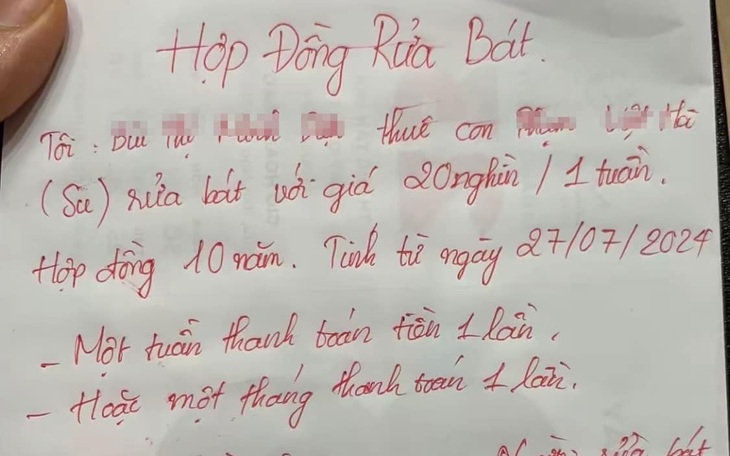 Hợp Đồng Rửa Bát.
Tôi: thuê con Hà
(Su) rửa bát với giá 20nghìn / 1 tuần.
Hợp đồng 10 năm. Tính từ ngày 27/07/2024
- Một tuần thanh toán tiền 1 lần.
- Hoặc một tháng thanh toán 1 lần.
rửa bát